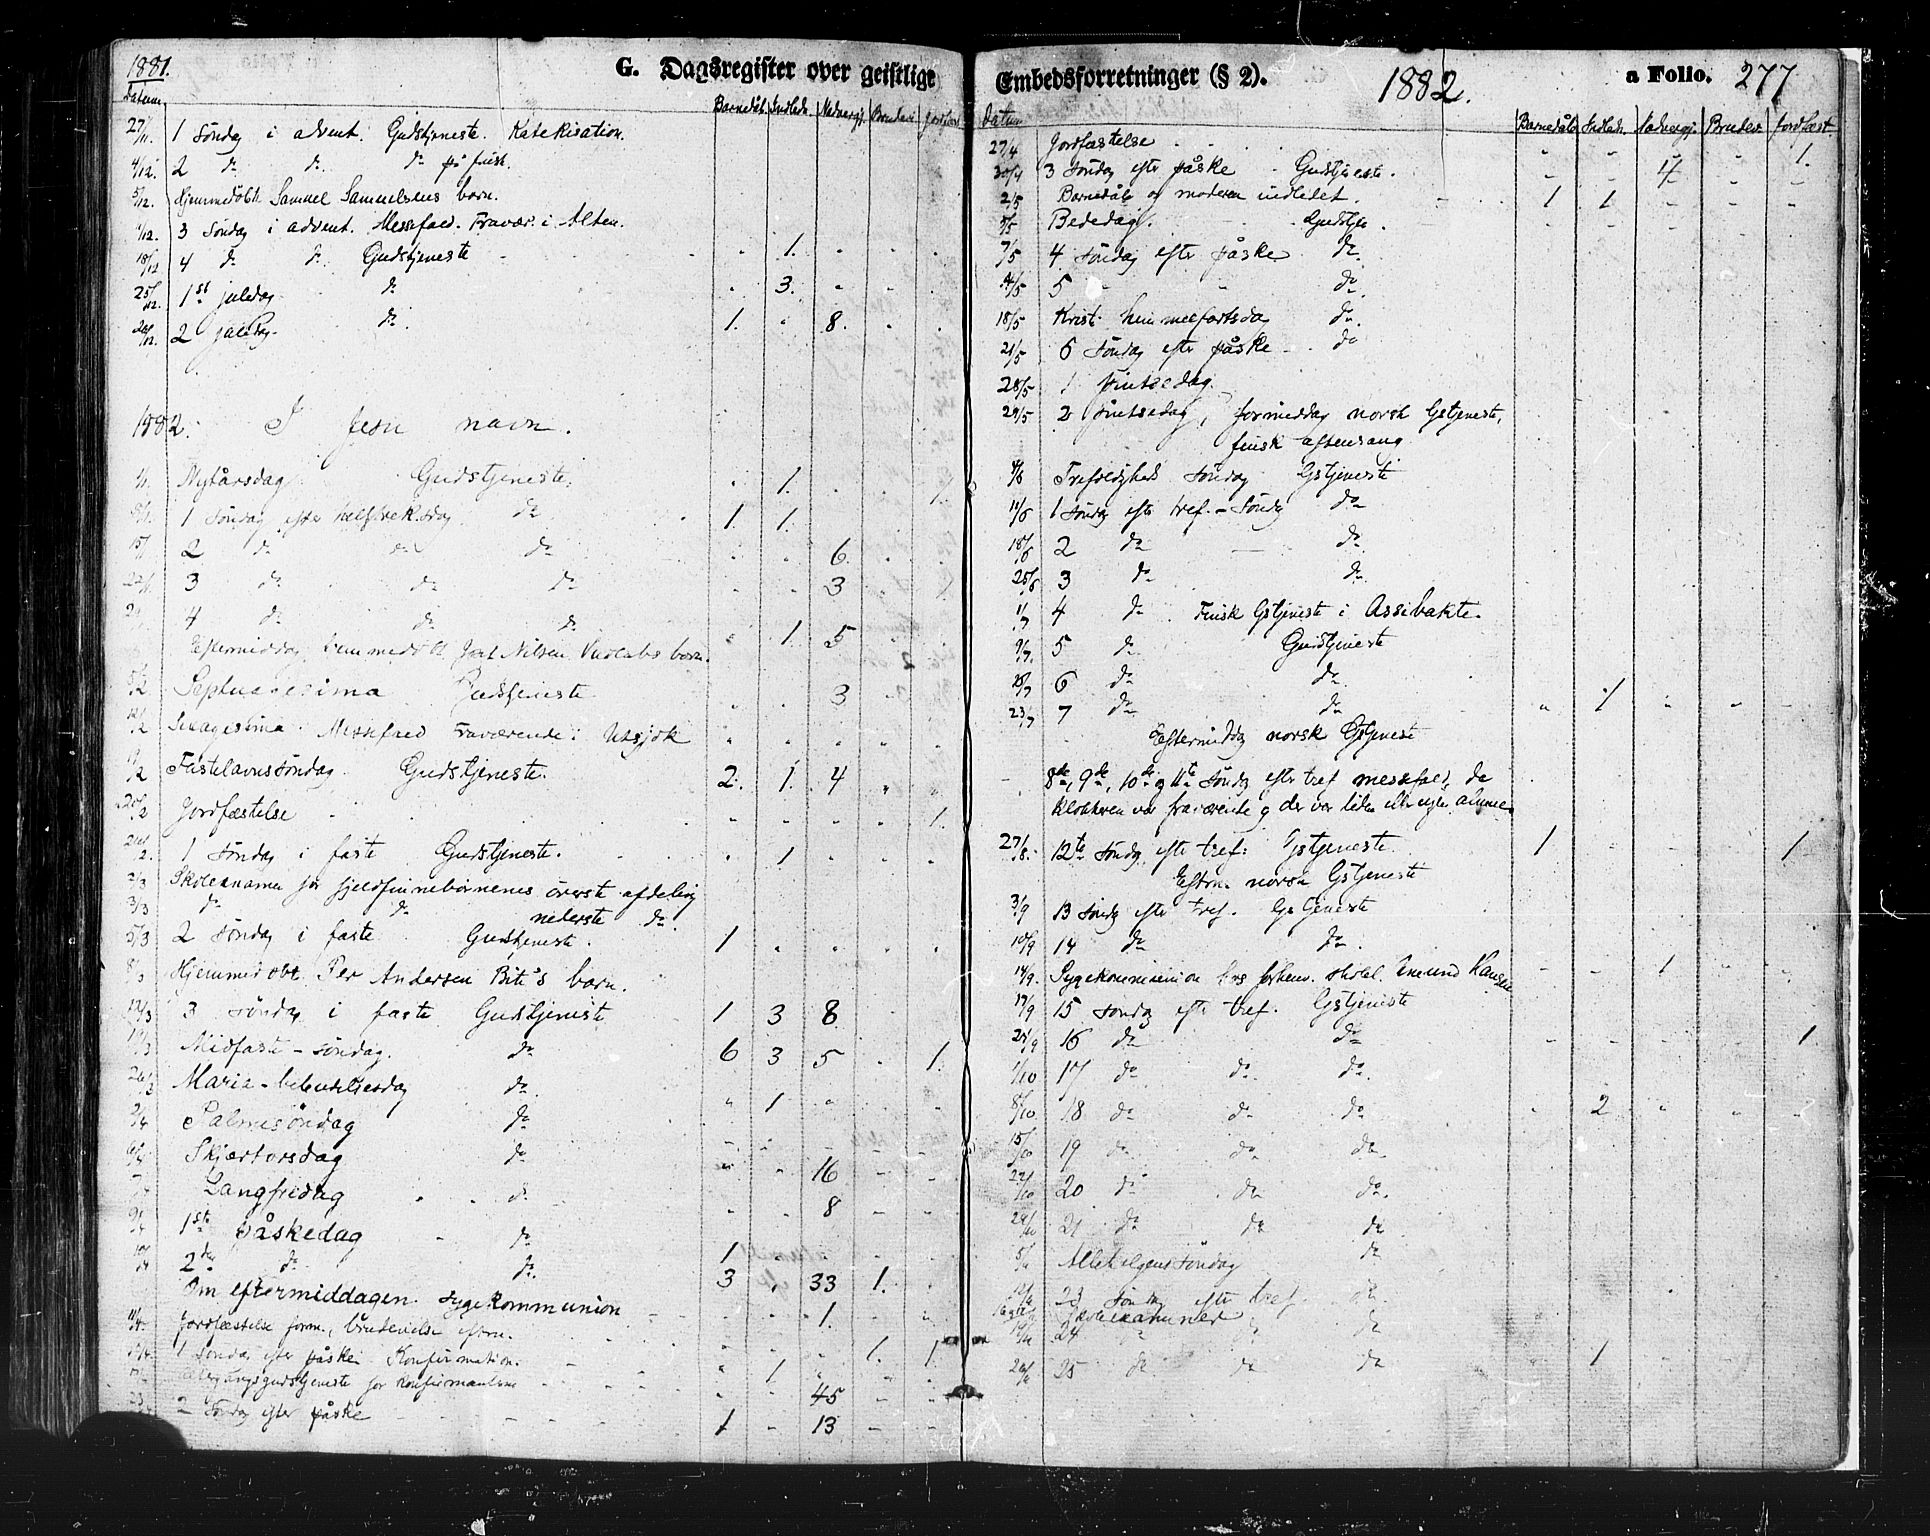 1881.
G. Dagsregister over geistlige
Datum Barnedåb Indledn. Nadvergj. Brudevi. Jordfæst.
27/11. 1 Søndag i advent. Gudstjeneste. Katekisation.
4/12. 2 do do do på finsk.
5/12. Hjemmedøbt Samuel Samuelsens barn.
11/12. 3 Søndag i advent. Messefald. Fravær. i Alten.
18/12 4 do do Gudstjeneste 1.
25/12. 1st juledag do 3.
26/12. 2 juledag. do 1. 8.
1882. I Jesu navn.
1/1. Nytårsdag Gudstjeneste. 1. 1.
8/1. 1 Søndag efter do 1. 1.
15/1 2 do do do 6.
22/1. 3 do do do 3 1.
4 do do do 1. 5
Eftermiddag hjemmedøbt Nilsen barn.
5/2 Septuagesima Gudstjeneste 3
12/2 Sexagesima. Messefald Fraværende i Utsjok
19/2 Fastelavnssøndag. Gudstjeneste. 2. 1. 4
20/2 Jordfæstelse 1.
26/2. 1 Søndag i faste Gudstjeneste. 1
2/3 Skoleexamen for fjeldfinnebørnenes øverste afdeling
3/3 do do nederste do
5/3 2 Søndag i faste Gudstjeneste. 1
8/3 Hjemmedøbt Per Andersen Bit's barn.
12/3 3 søndag i faste Gudstjeniste 1 3 8
19/3 Midfaste-søndag. do 6 3 5 1.
26/3 Maria-bebudelsesdag do 1
2/4 Palmesøndag do
6/4 Skjærtorsdag do 16
7/4 Langfredag do 8
9/4 1ste påskedag do 1
10/4 2den do do. 3 33 1.
Om eftermiddagen Sygekommunion 1.
11/4. Jordfæstelse form., brudevielse efterm. 1. 1
1 Søndag efter påske Konfirmation. 1
Altergangsgudstjeneste for konfirmanterne 45
23/4 2 Søndag efter påske 1 13
Embedsforretninger (§ 2). 1882. a Folio. 277
Datum Barnedåb Indledn. Nadvergj. Brudevi. Jordfæst.
27/4 Jordfæstelse 1.
30/4 3 Søndag efter påske Gudstjeneste. 4
2/5 Barnedåb og moderen indledet. 1 1
5/5 Bededag. Gudstjen.
7/5 4 Søndag efter påske do
14/5 5 " " do
18/5 Krist. himmelfartsdag do
21/5 6 Søndag efter påske do
28/5 1 pintsedag
29/5 2 pintsedag, formiddag norsk Gstjeneste,
finsk aftensang
4/6 Trefoldigheds søndag Gstjeneste
11/6 1 Søndg eftr tref.-Søndg do
18/6 2 do do
25/6 3 do do
1/7 4 do Finsk Gstjeneste i Assebakte.
9/7. 5 do Gudstjeneste
16/7 6 do do
23/7 7 do do 1
Eftermiddg norsk Gstjenest
8de, 9de, 10de og 11te Søndg efter tref messefald, da
klokkeren var fraværende og der var liden eller ingen almue
27/8. 12te Søndg efter tref. Gstjeneste 1 1
Efterm. norsk Gstjeneste
3/9 13 Søndg efter tref. Gstjeneste
10/9 14 do do.
14/9. Sygekommunion hos Amund Hansen 1
17/9 15 Søndag efter tref. Gstjeniste
24/9 16 do do 1.
1/10 17 do do do
8/10 18 do do do 2
15/10 19 do do do
22/10 20 do do do.
29/10 21 do do do
5/11 Allehelgens søndag do
12/11 23 Søndg efter tref. do
Skoleexamener
19/11 24 " do do
26/11 25 do do do 1